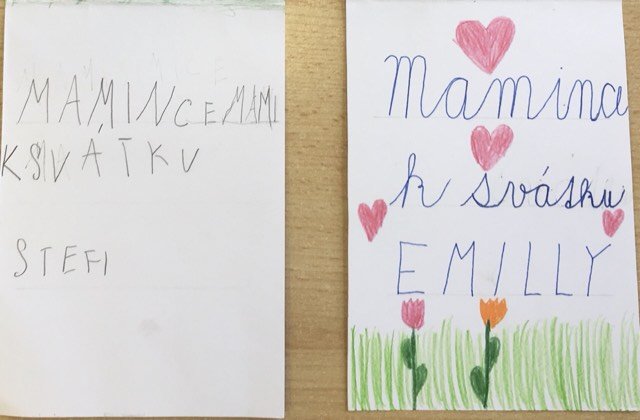 MAMINCE MAMI
K SVÁTKU
STEFI
Mamina
k svátku
EMILLY